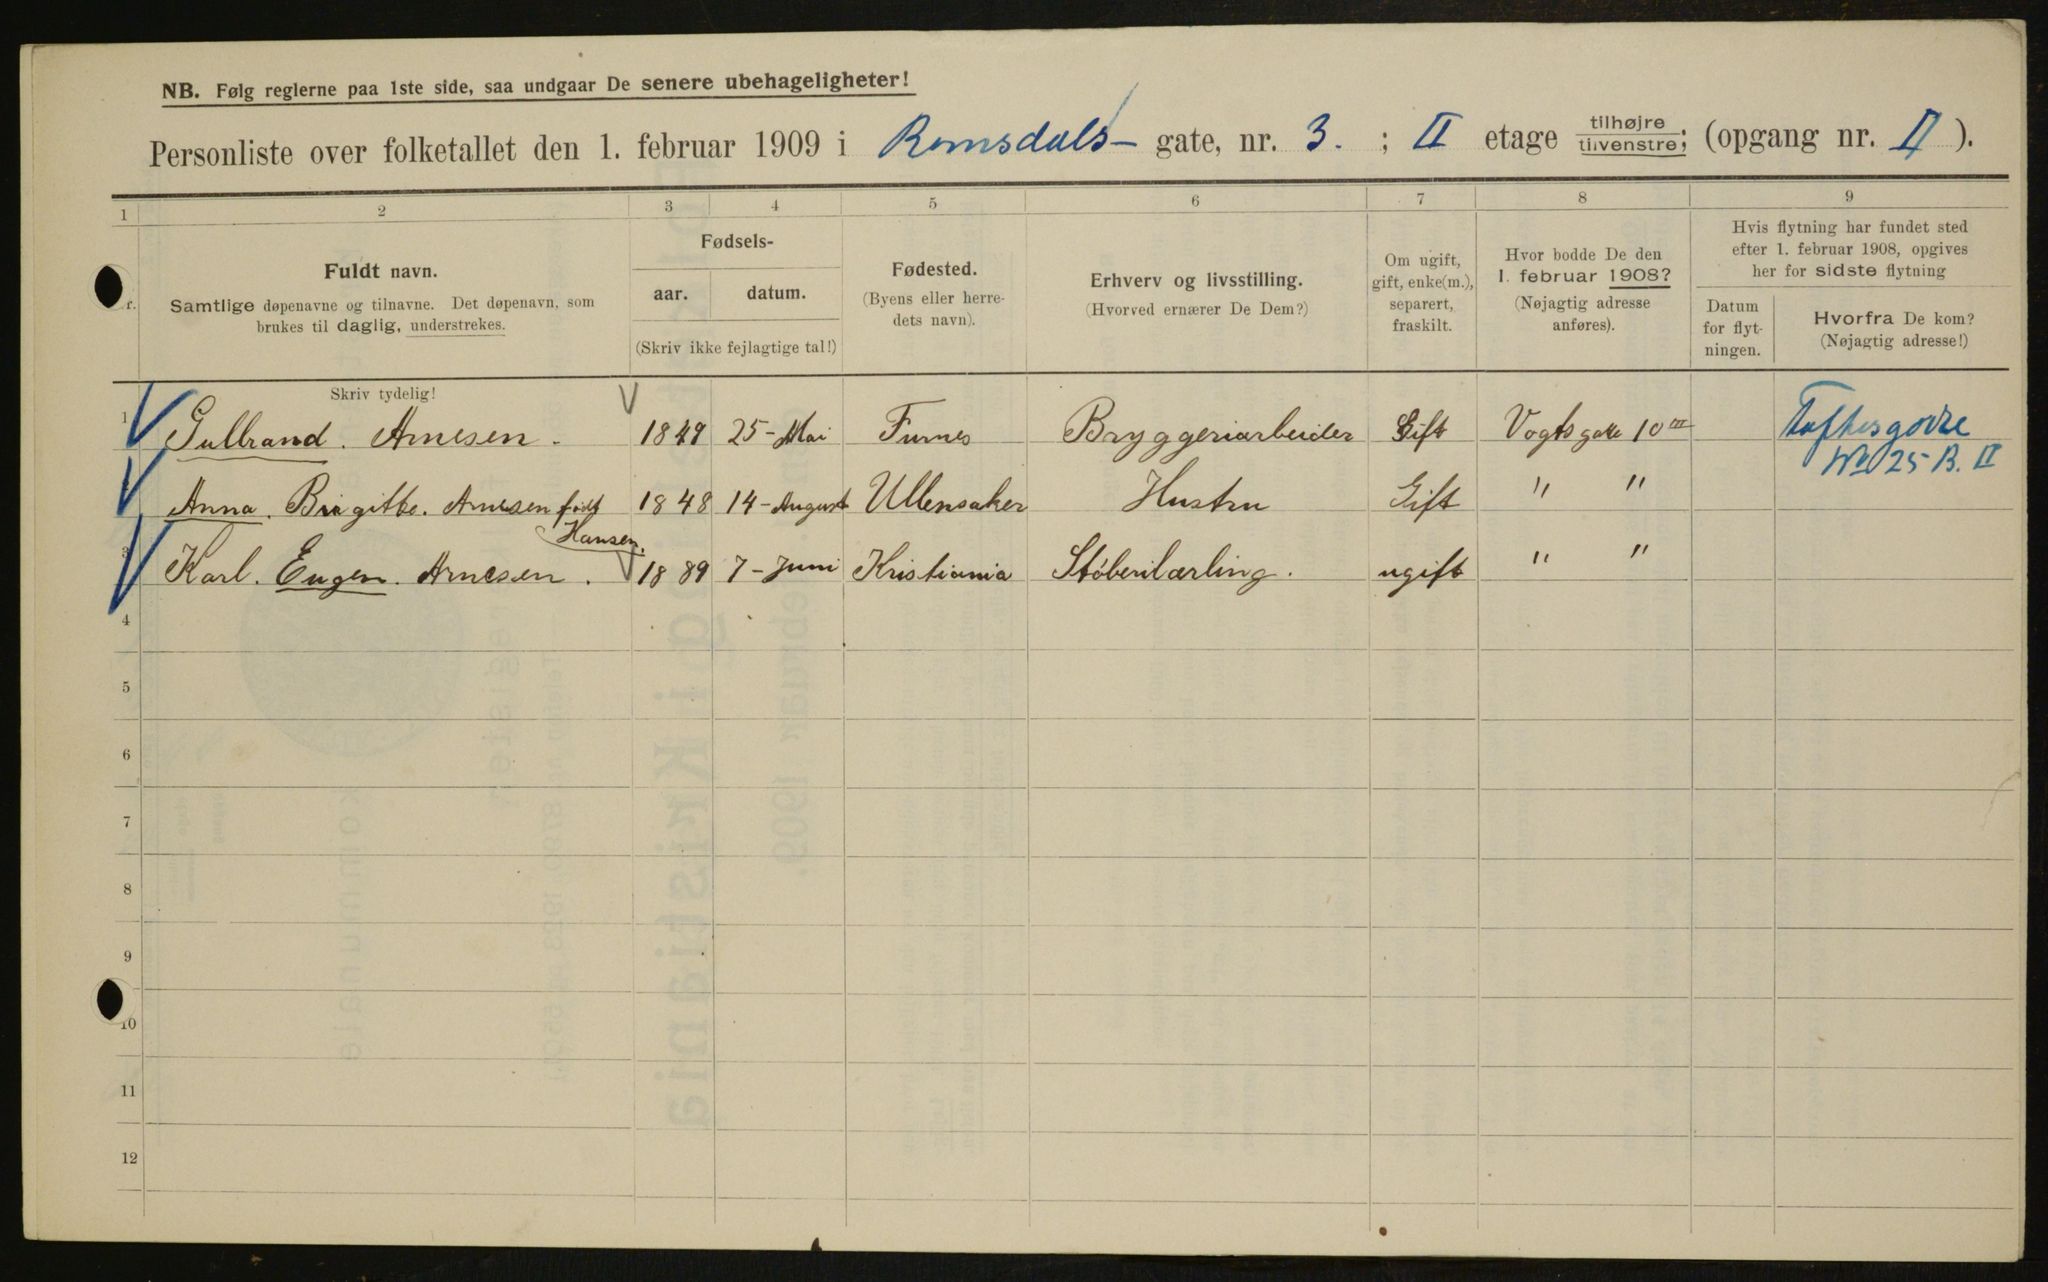 NB. Følg reglerne paa 1ste side, saa undgaar De senere ubehageligheter!
Personliste over folketallet den 1. februar 1909 i Romsdals- gate, nr. 3. ; II etage tilhøjre tilvenstre; (opgang nr. II ).
1 2 3 4 5 6 7 8 9
Fuldt navn.
Samtlige døpenavne og tilnavne. Det døpenavn, som
brukes til daglig, understrekes.
Fødsels-
aar. datum.
(Skriv ikke fejlagtige tal!)
Fødested.
(Byens eller herre-
dets navn).
Erhverv og livsstilling.
(Hvorved ernærer De Dem?)
Om ugift,
gift, enke(m.),
separert,
fraskilt.
Hvor bodde De den
1. februar 1908?
(Nøjagtig adresse
anføres).
Hvis flytning har fundet sted
efter 1. februar 1908, opgives
her for sidste flytning
Datum
for flyt-
ningen.
Hvorfra De kom?
(Nøjagtig adresse!)
Skriv tydelig!
1 Gulbrand. Arnesen. 1849 25-Mai Furnes Bryggeriarbeider Gift Vogtsgate 10 III
Toftesgade
No 25 B. II
Anna. Birgitte. Arnesen født 1848 14-August Ullensaker Hustru Gift " "
Hansen.
3 Karl. Eugen. Arnesen. 1889 7-Juni Kristiania Støberilærling. ugift " "
4
5
6
7
8
9
10
11
12